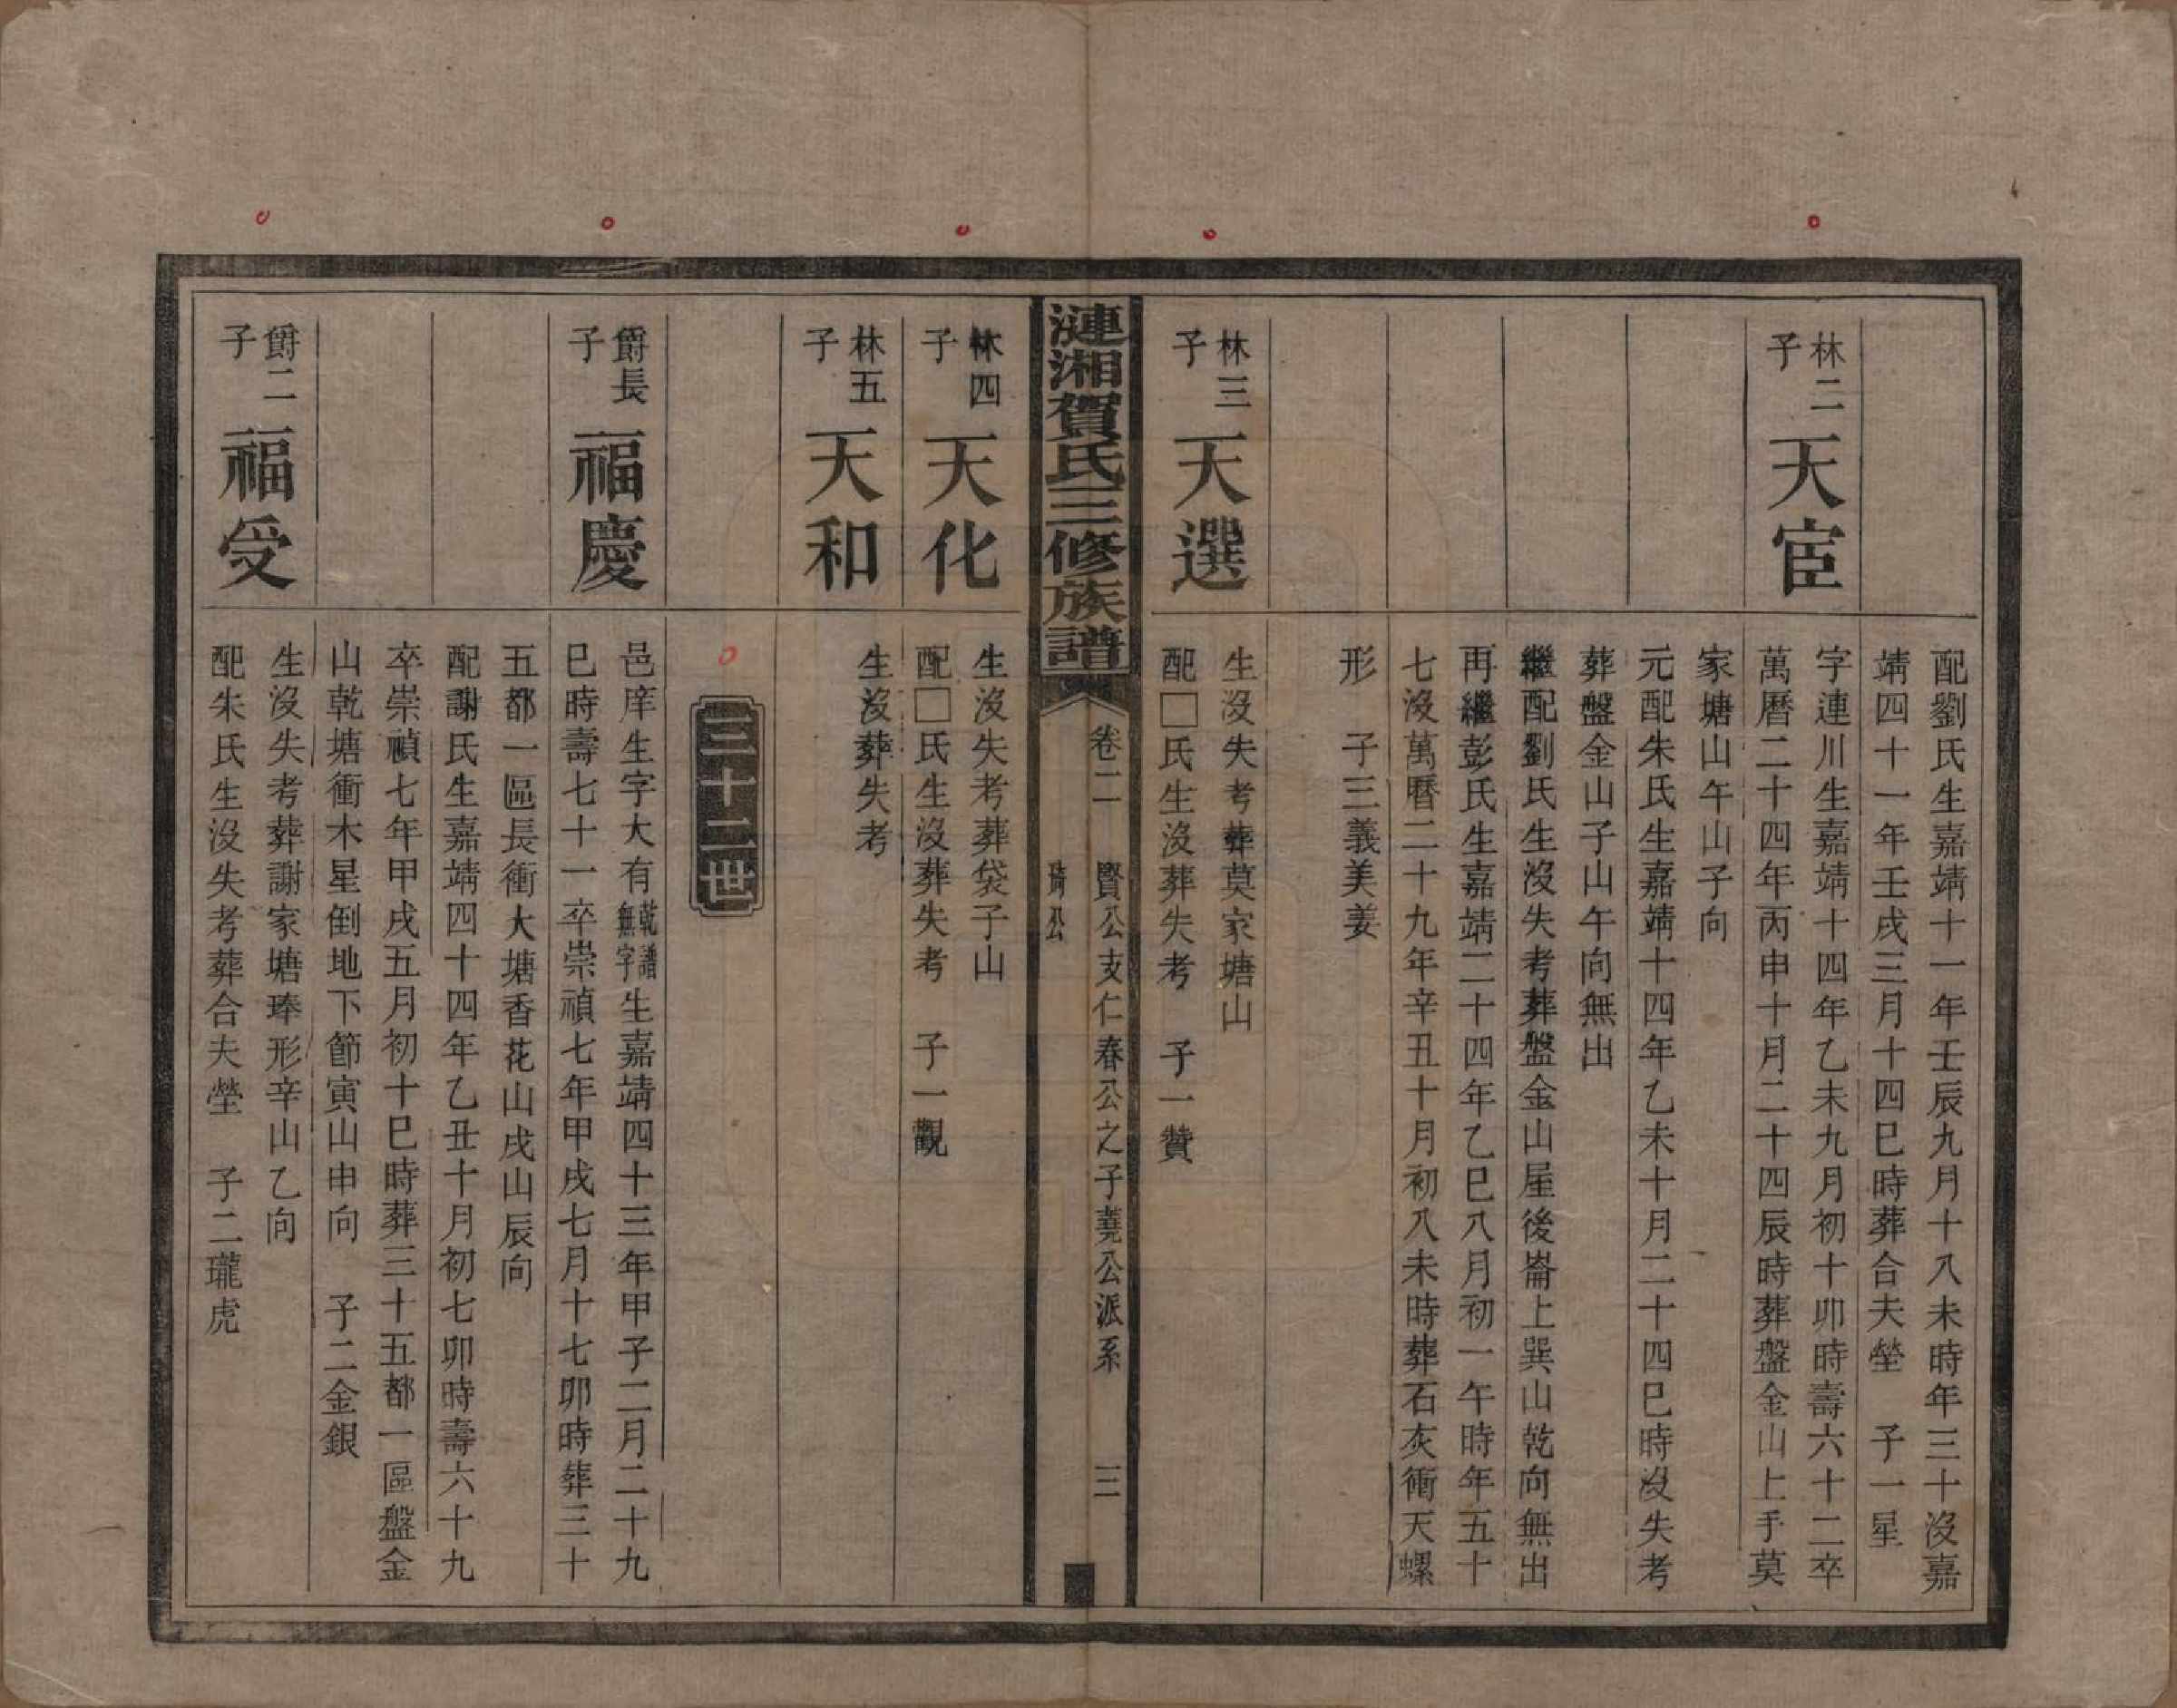 配劉氏生嘉靖十一年壬辰九月十八未時年三十沒嘉
靖四十一年壬戌三月十四巳時葬合夫塋　子一星
林二子
天宦
字連川生嘉靖十四年乙未九月初十卯時壽六十二卒
萬曆二十四年丙申十月二十四辰時葬盤金山上手莫
家塘山午山子向
元配朱氏生嘉靖十四年乙未十月二十四巳時沒失考
葬盤金山子山午向無出
繼配劉氏生沒失考葬盤金山屋後崙上巽山乾向無出
再繼彭氏生嘉靖二十四年乙巳八月初一午時年五十
七沒萬曆二十九年辛丑十月初八未時葬石灰衝天螺
形　子三義美姜
林三子
天選
生沒失考葬莫家塘山
配□氏生沒葬失考　子一贊
漣湘賀氏三修族譜
卷二　賢公支仁春公之子蕘公派系
琦公
三
林四子
天化
生沒失考葬袋子山
配□氏生沒葬失考　子一觀
林五子
天和
生沒葬失考
三十二世
爵長子
福慶
邑庠生字大有乾譜無字生嘉靖四十三年甲子二月二十九
巳時壽七十一卒崇禎七年甲戌七月十七卯時葬三十
五都一區長衝大塘香花山戌山辰向
配謝氏生嘉靖四十四年乙丑十月初七卯時壽六十九
卒崇禎七年甲戌五月初十巳時葬三十五都一區盤金
山乾塘衝木星倒地下節寅山申向　子二金銀
爵二子
福受
生沒失考葬謝家塘琫形辛山乙向
配朱氏生沒失考葬合夫塋　子二瓏虎